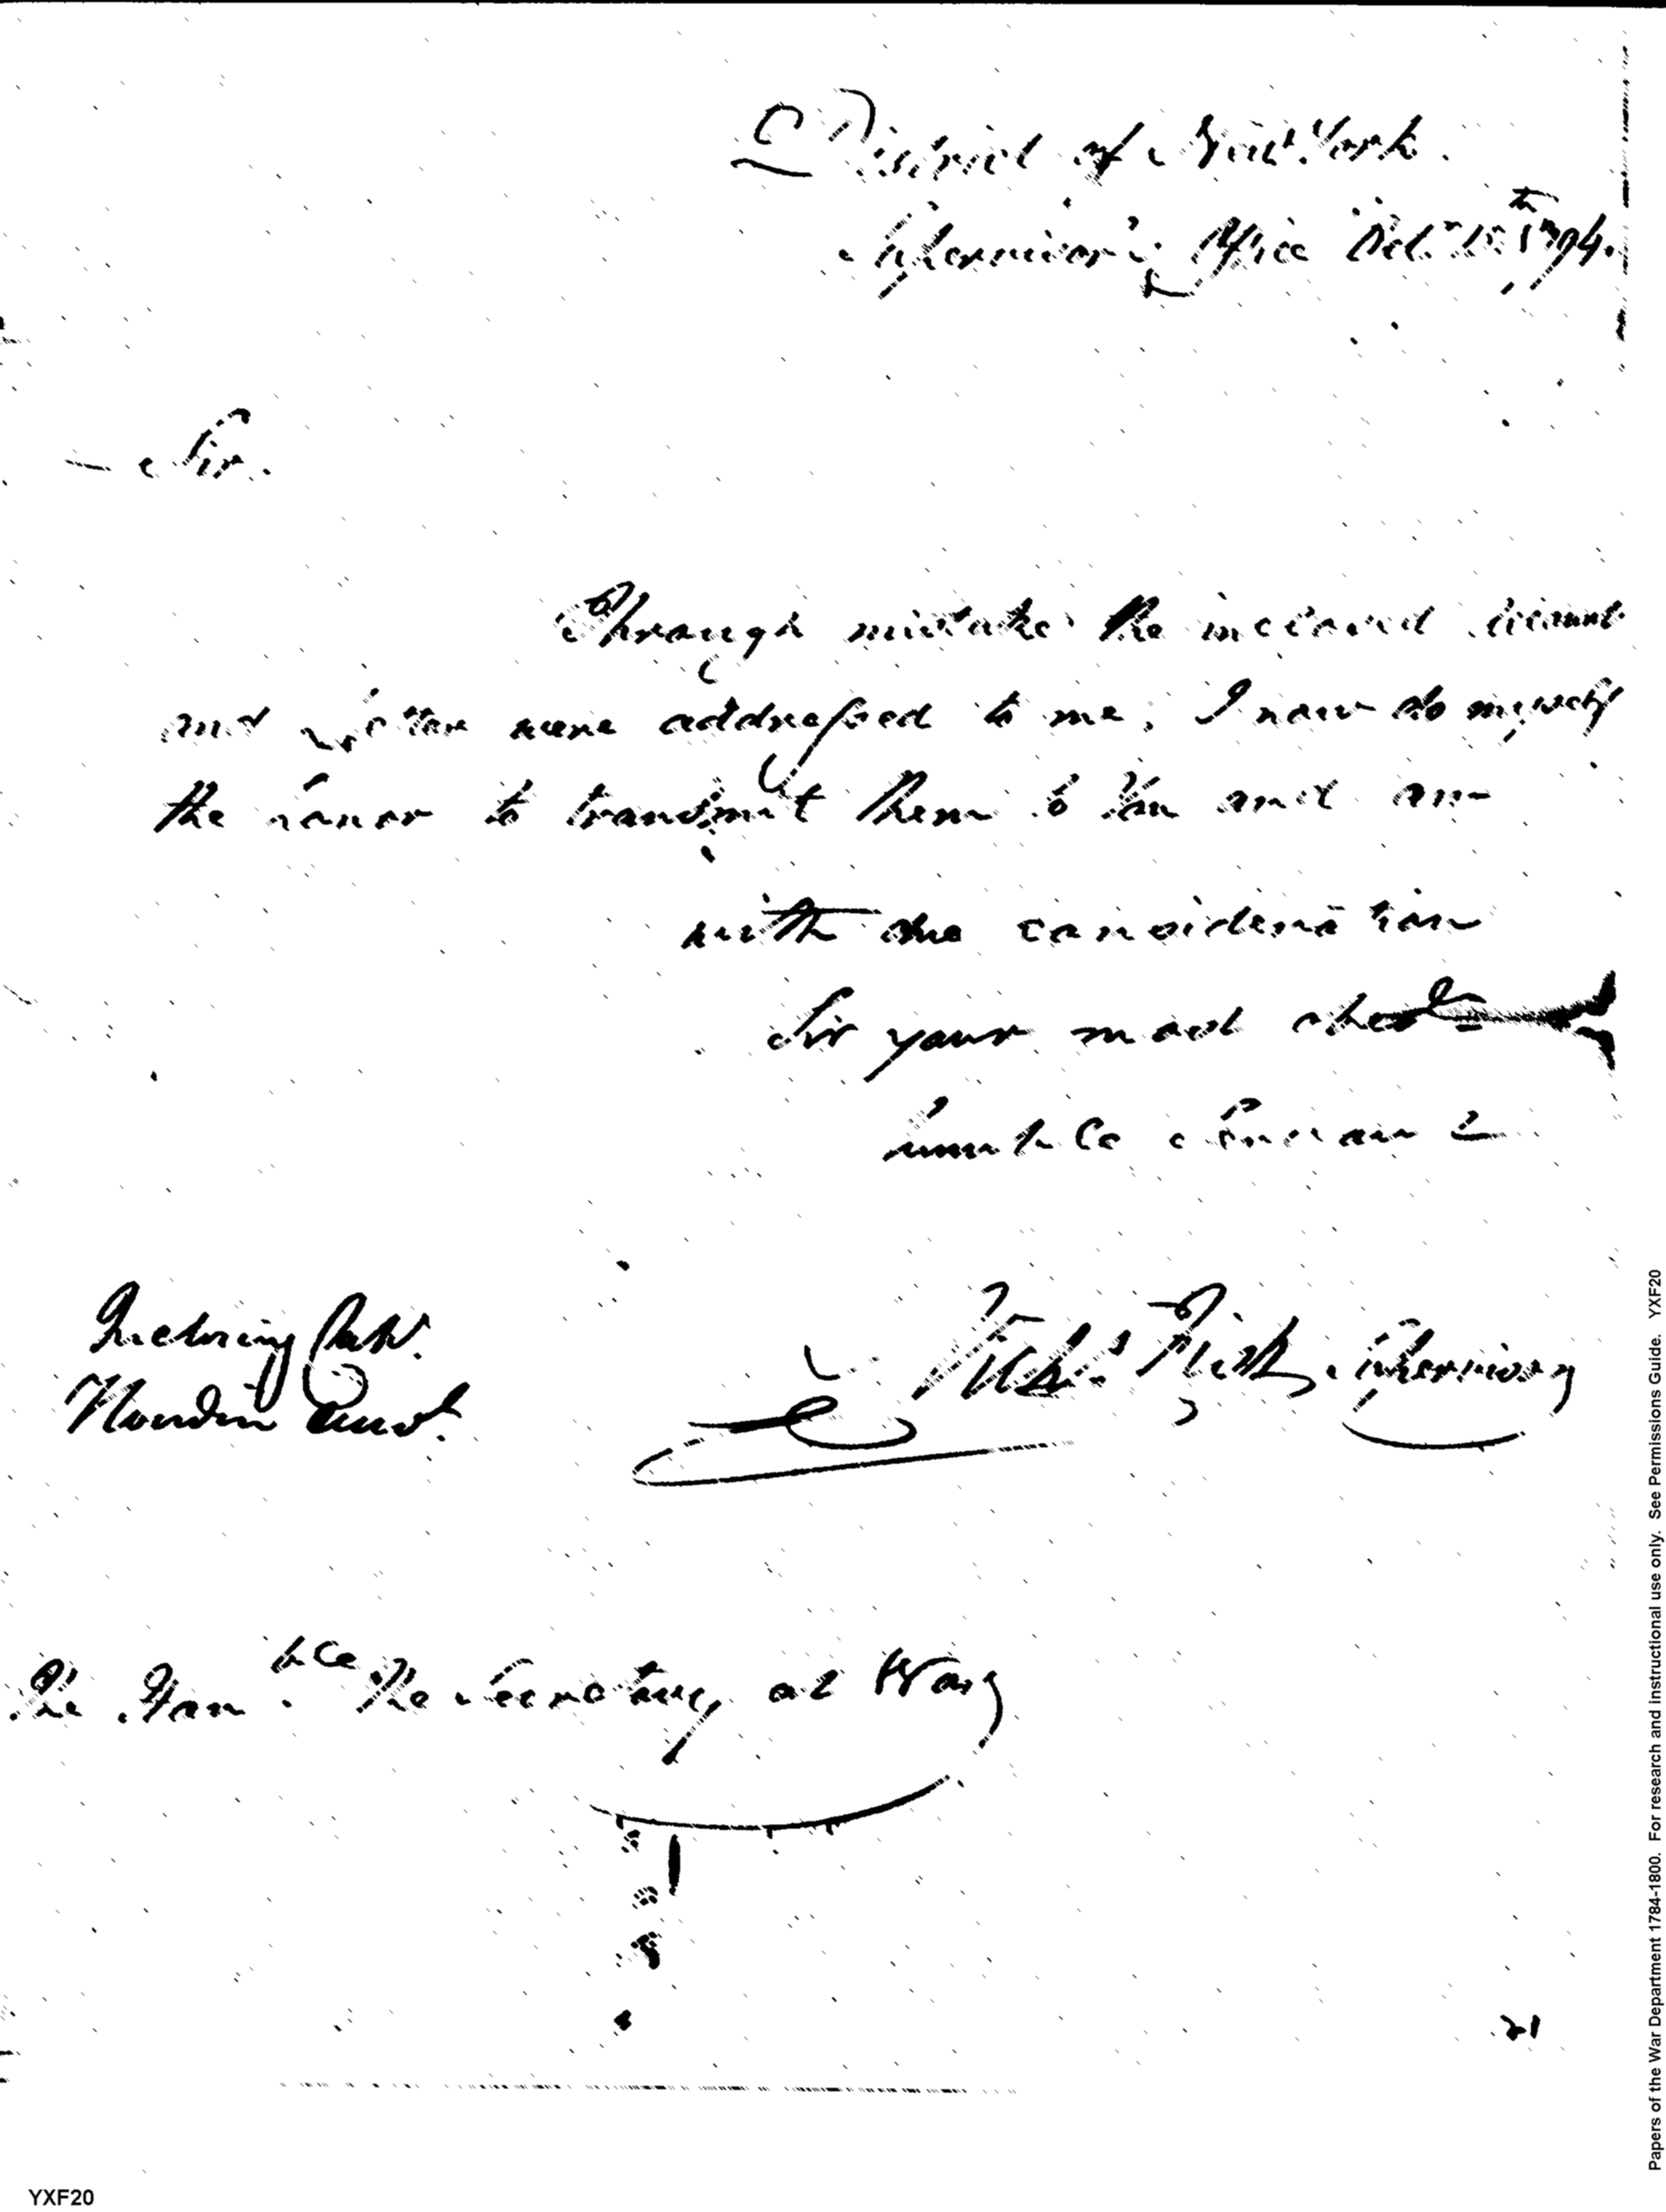 District of New York.
Supervisor's Office Oct. 15th 1794.
Sir.
Through mistake the inclosed account
and letter were addressed to me, I now do myself
the honor to transmit them to You and am
with due consideration
Sir your most obedt
humble Servant
Inclosing Capt.
Houdin Accot.
Richd Supervisor
The Honble The Secretary at War
21
YXF20
Papers of the War Department 1784-1800. For research and instructional use only. See Permissions Guide. YXF20